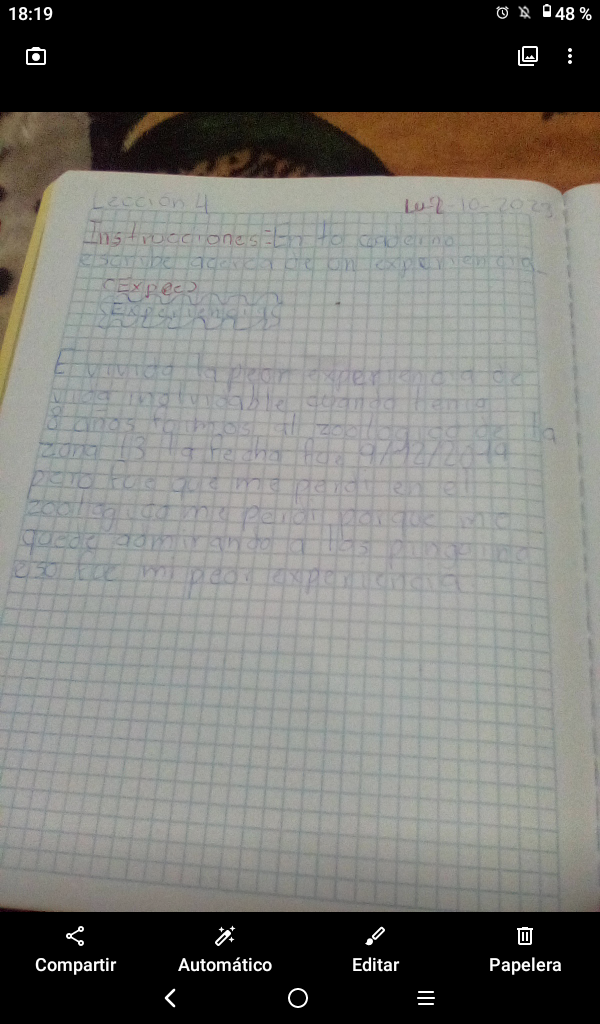 18:19
48 %
Lección 4
Lu2-10-2023
Instrucciones=En tu cuaderno
escribe acerca de un experiencia
(Expec)
Experiencias
E vivido la peor experiencia de
vida inolvidable cuando tenia
8 años fuimos al zoológico de la
zona 13 la fecha fue 9/12/2019
pero fue que me perdi en e
zoológico me perdi porque me
quede admirando a los pinguino
eso fue mi peor experiencia
Compartir
Automático
Editar
Papelera